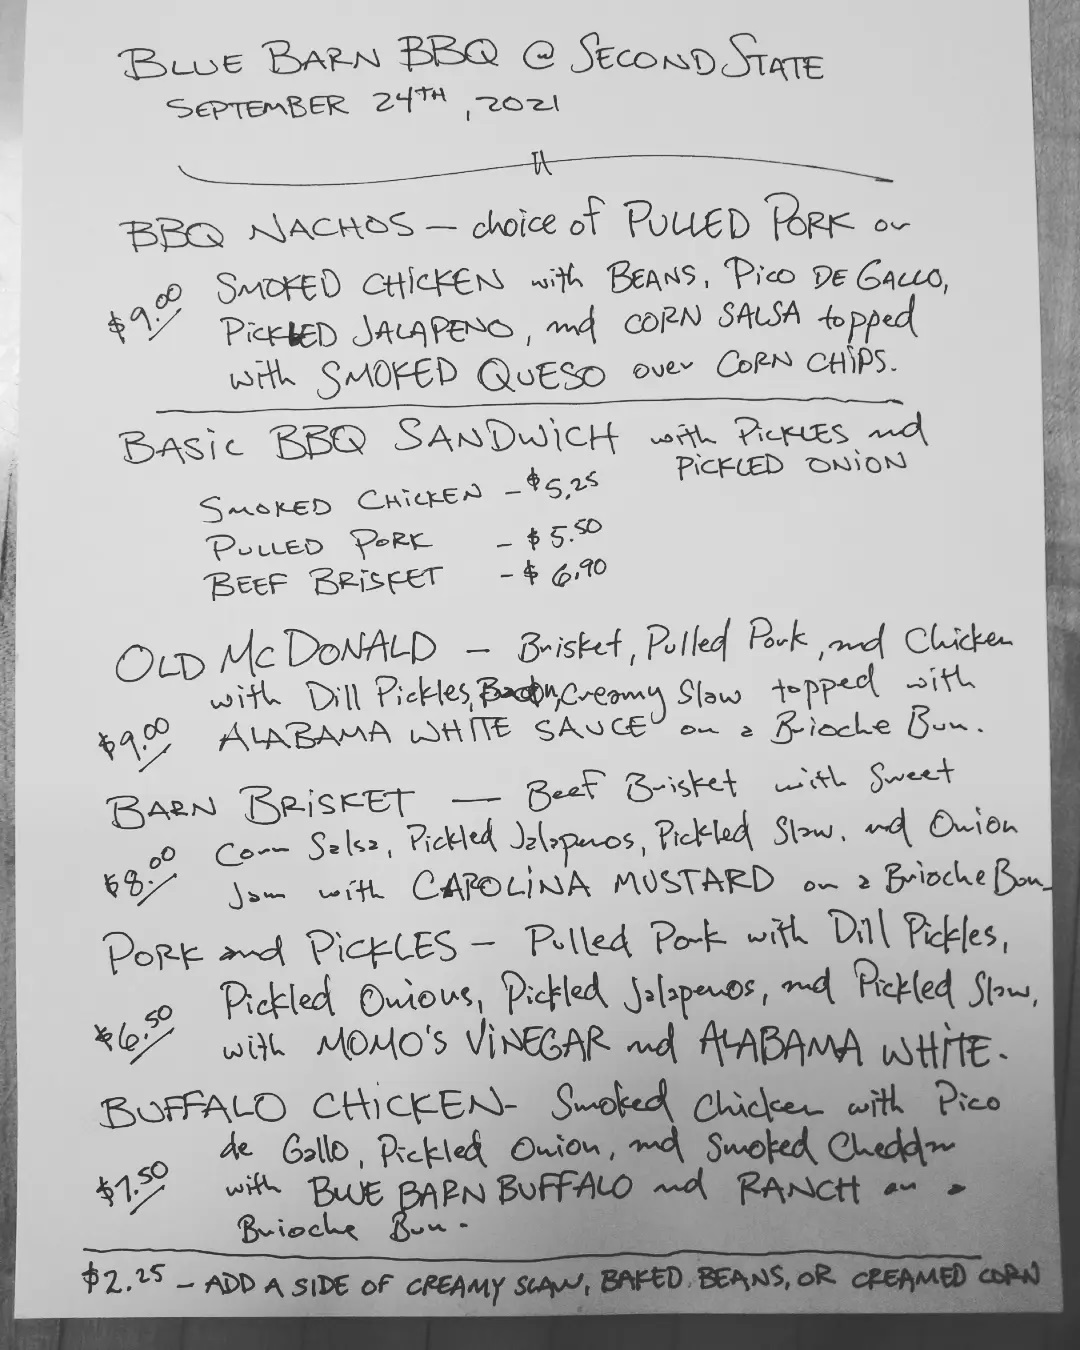 BLUE BARN BBQ @ SECOND STATE
SEPTEMBER 24TH, 2021
BBQ NACHOS — choice of PULLED PORK or
$9.00 SMOKED CHICKEN with BEANS, PICO DE GALLO,
PICKLED JALAPENO, and CORN SALSA topped
with SMOKED QUESO over CORN CHIPS.
BASIC BBQ SANDWICH with PICKLES and
PICKLED ONION
SMOKED CHICKEN - $5.25
PULLED PORK - $5.50
BEEF BRISKET - $6.90
OLD McDONALD — Brisket, Pulled Pork, and Chicken
with Dill Pickles, Bacon, Creamy Slaw topped with
$9.00 ALABAMA WHITE SAUCE on a Brioche Bun.
BARN BRISKET — Beef Brisket with Sweet
$8.00 Corn Salsa, Pickled Jalapenos, Pickled Slaw, and Onion
Jam with CAROLINA MUSTARD on a Brioche Bun
PORK and PICKLES — Pulled Pork with Dill Pickles,
Pickled Onions, Pickled Jalapenos, and Pickled Slaw,
$6.50 with MOMO'S VINEGAR and ALABAMA WHITE.
BUFFALO CHICKEN- Smoked Chicken with Pico
de Gallo, Pickled Onion, and Smoked Cheddar
$7.50 with BLUE BARN BUFFALO and RANCH on a
Brioche Bun.
$2.25 - ADD A SIDE OF CREAMY SLAW, BAKED BEANS, OR CREAMED CORN